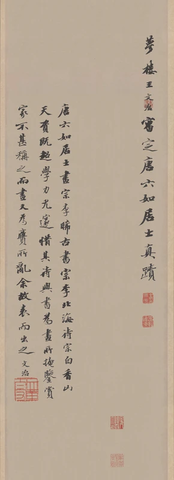 夢樓王文治審定唐六如居士真蹟
唐六如居士畫宗李晞古書宗李北海詩宗白香山
天資既超學力尤邃惜其詩與書為畫所掩鑒賞
家不甚稱之而畫又為贋所亂余故表而出之 文治